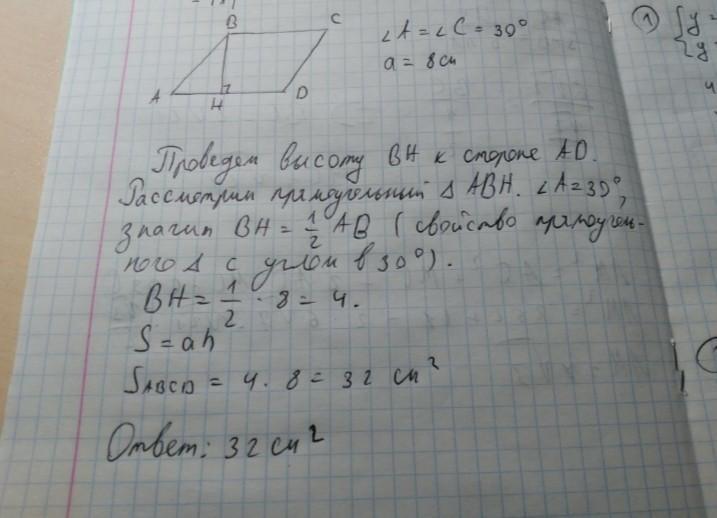 B C
A H D
∠A = ∠C = 30°
a = 8 см
Проведем высоту BH к стороне AD.
Рассмотрим прямоугольный Δ ABH. ∠A = 30°,
значит BH = 1/2 AB (свойство прямоуголь-
ного Δ с углом в 30°).
BH = 1/2 · 8 = 4.
S = ah
SABCD = 4 · 8 = 32 см²
Ответ: 32 см²
1 { y =
y